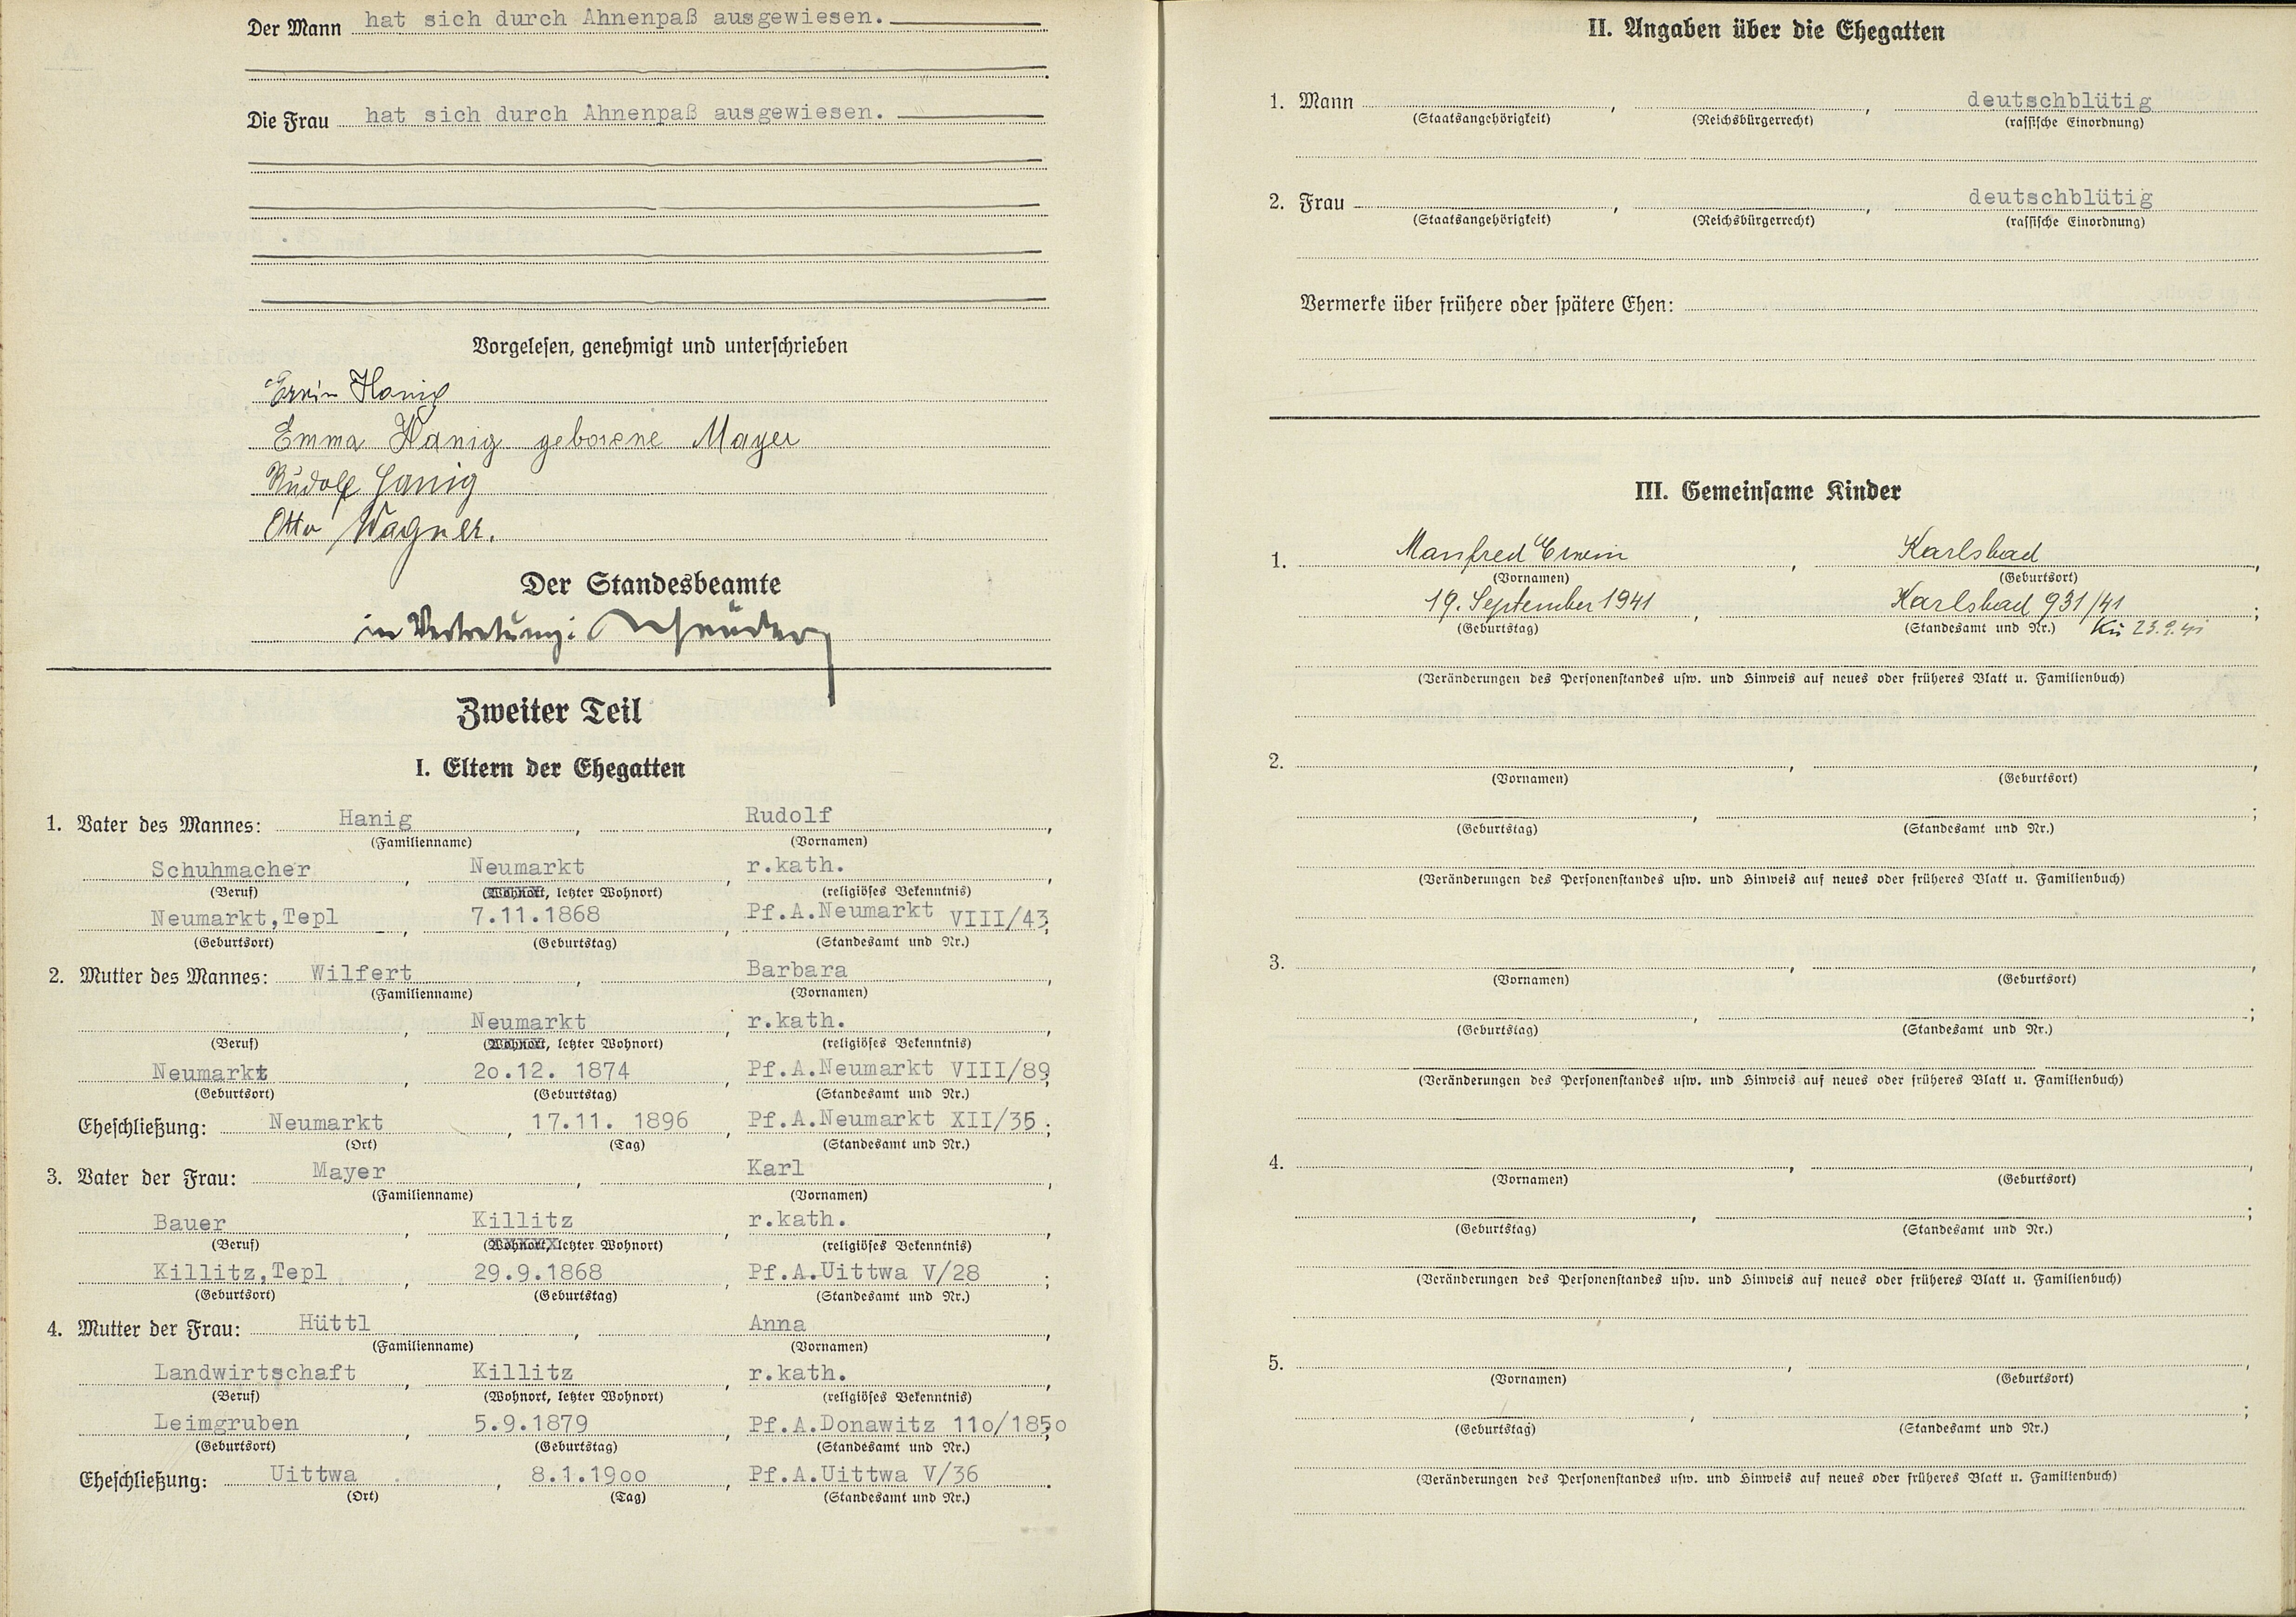 Der Mann hat sich durch Ahnenpaß ausgewiesen.
Die Frau hat sich durch Ahnenpaß ausgewiesen.
Vorgelesen, genehmigt und unterschrieben
Erwin Hanig
Emma Hanig geborene Mayer
Rudolf Hanig
Otto Wagner.
Der Standesbeamte
in Vertretung:
Zweiter Teil
I. Eltern der Ehegatten
1. Vater des Mannes: Hanig, Rudolf,
(Familienname) (Vornamen)
Schuhmacher, Neumarkt, r.kath.,
(Beruf) (Wohnort, letzter Wohnort) (religiöses Bekenntnis)
Neumarkt,Tepl, 7.11.1868, Pf.A.Neumarkt VIII/43;
(Geburtsort) (Geburtstag) (Standesamt und Nr.)
2. Mutter des Mannes: Wilfert, Barbara,
(Familienname) (Vornamen)
, Neumarkt, r.kath.,
(Beruf) (Wohnort, letzter Wohnort) (religiöses Bekenntnis)
Neumarkt, 2o.12. 1874, Pf.A.Neumarkt VIII/89;
(Geburtsort) (Geburtstag) (Standesamt und Nr.)
Eheschließung: Neumarkt, 17.11. 1896, Pf.A.Neumarkt XII/35;
(Ort) (Tag) (Standesamt und Nr.)
3. Vater der Frau: Mayer, Karl,
(Familienname) (Vornamen)
Bauer, Killitz, r.kath.,
(Beruf) (Wohnort, letzter Wohnort) (religiöses Bekenntnis)
Killitz,Tepl, 29.9.1868, Pf.A.Uittwa V/28;
(Geburtsort) (Geburtstag) (Standesamt und Nr.)
4. Mutter der Frau: Hüttl, Anna,
(Familienname) (Vornamen)
Landwirtschaft, Killitz, r.kath.,
(Beruf) (Wohnort, letzter Wohnort) (religiöses Bekenntnis)
Leimgruben, 5.9.1879, Pf.A.Donawitz 11o/185o;
(Geburtsort) (Geburtstag) (Standesamt und Nr.)
Eheschließung: Uittwa, 8.1.19oo, Pf.A.Uittwa V/36.
(Ort) (Tag) (Standesamt und Nr.)
II. Angaben über die Ehegatten
1. Mann , , deutschblütig
(Staatsangehörigkeit) (Reichsbürgerrecht) (rassische Einordnung)
2. Frau , , deutschblütig
(Staatsangehörigkeit) (Reichsbürgerrecht) (rassische Einordnung)
Vermerke über frühere oder spätere Ehen:
III. Gemeinsame Kinder
1. Manfred Erwin, Karlsbad,
(Vornamen) (Geburtsort)
19. September 1941, Karlsbad 931/41;
(Geburtstag) (Standesamt und Nr.) Kü 23.9.41
(Veränderungen des Personenstandes usw. und Hinweis auf neues oder früheres Blatt u. Familienbuch)
2. , ,
(Vornamen) (Geburtsort)
, ;
(Geburtstag) (Standesamt und Nr.)
(Veränderungen des Personenstandes usw. und Hinweis auf neues oder früheres Blatt u. Familienbuch)
3. , ,
(Vornamen) (Geburtsort)
, ;
(Geburtstag) (Standesamt und Nr.)
(Veränderungen des Personenstandes usw. und Hinweis auf neues oder früheres Blatt u. Familienbuch)
4. , ,
(Vornamen) (Geburtsort)
, ;
(Geburtstag) (Standesamt und Nr.)
(Veränderungen des Personenstandes usw. und Hinweis auf neues oder früheres Blatt u. Familienbuch)
5. , ,
(Vornamen) (Geburtsort)
, ;
(Geburtstag) (Standesamt und Nr.)
(Veränderungen des Personenstandes usw. und Hinweis auf neues oder früheres Blatt u. Familienbuch)